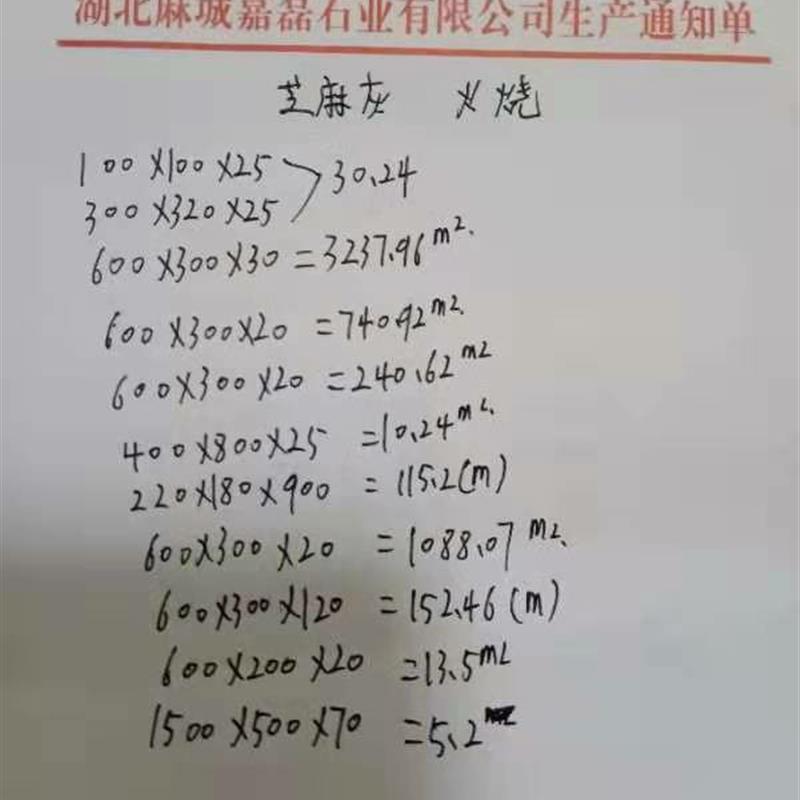 湖北麻城嘉磊石业有限公司生产通知单
芝麻灰 火烧
100×100×25
300×320×25 30.24
600×300×30=3237.96m².
600×300×20=740.92m2.
600×300×20=240.62m2
400×800×25=10.24m2.
220×180×900=115.2(m)
600×300×20=1088.07m2.
600×300×120=152.46(m)
600×200×20=13.5m2
1500×500×70=5.2